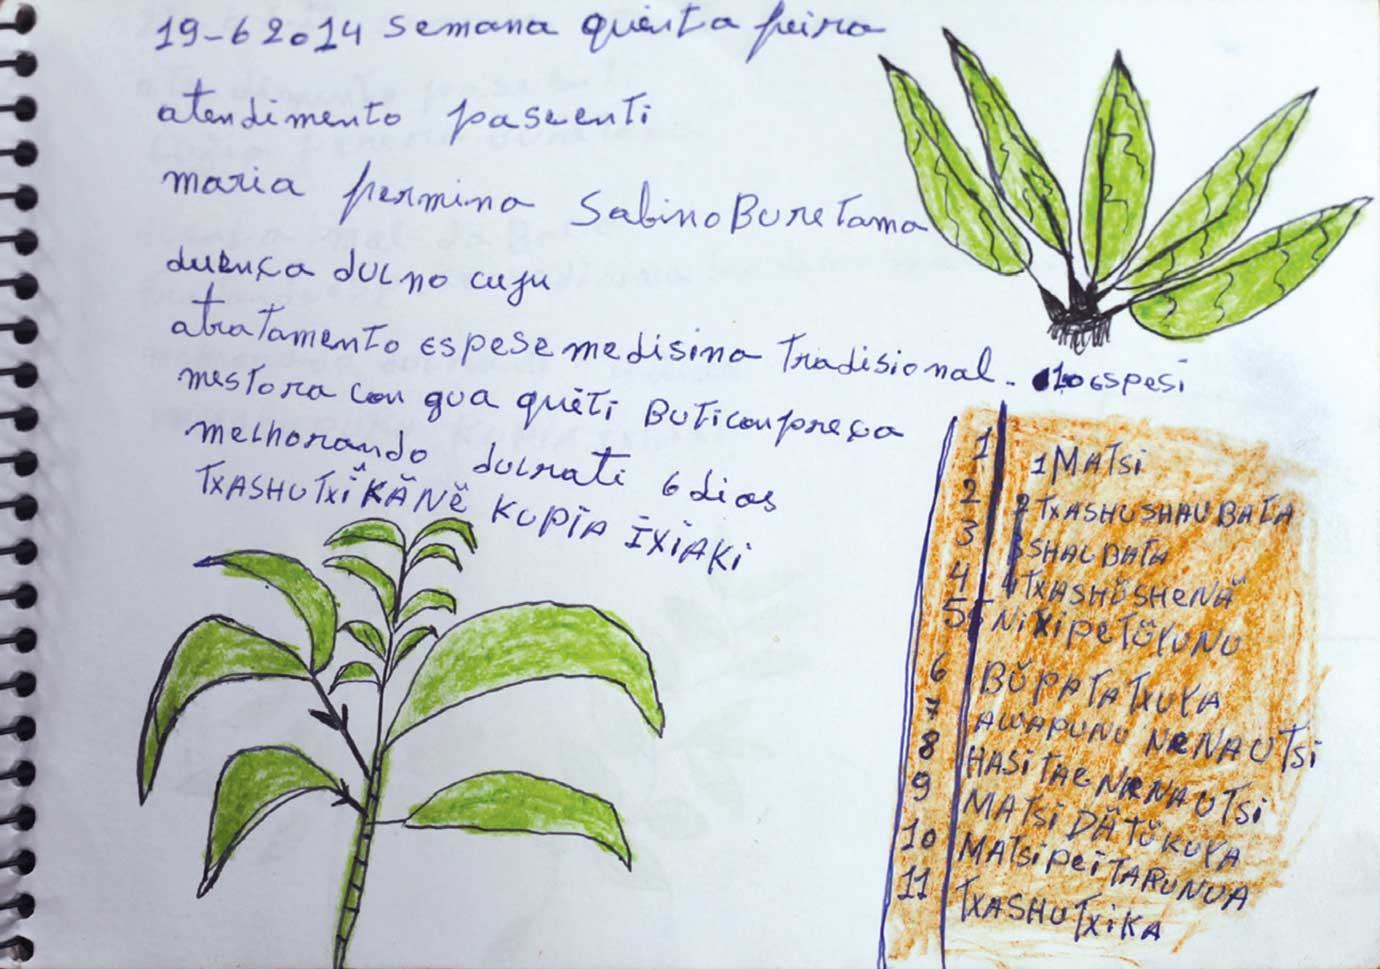 19-6 2014 semana quinta feira
atendimento paseenti
maria fermino Sabino Buretama
duença dulno cuju
atratamento espese medisina Tradisional. 10 espesi
mestora con gua quēti Buticonpreça
melhorando dulrati 6 dias
TXASHUTXĩKÃNẽ KUPĩA ĩXiAKi
1 1 MATSi
2 2 TXASHUSHAUBATA
3 3 SHAUBATA
4 4 TXASHŭSHeNÃ
5 5 NiXiPeTŭYUNU
6 BŭPATATXUYA
7 AWAPUNU NeNAUTSi
8 HASiTAeNeNAUTSi
9 MATSi DÃTŭKUYA
10 MATSiPeiTARUNUA
11 TXASHUTXiKA